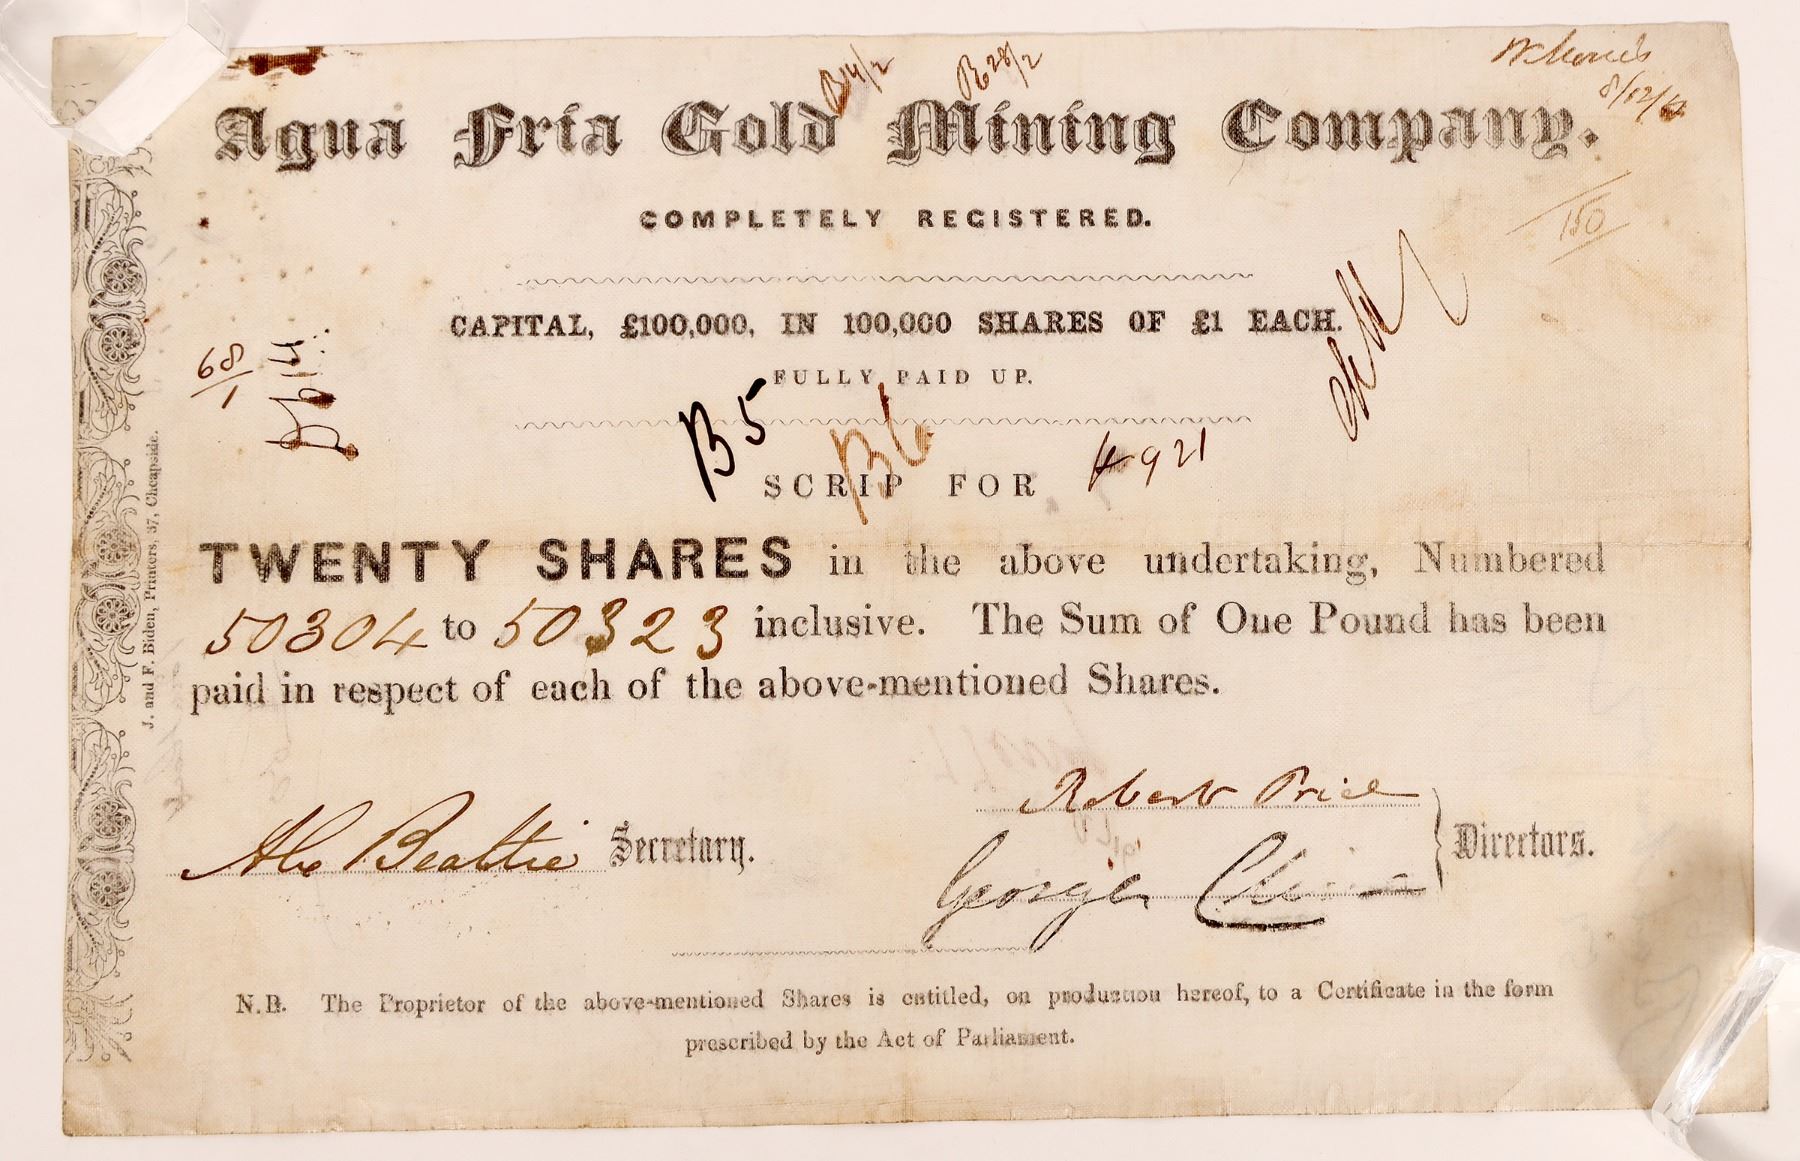 B14/2 B28/2
Agua Fria Gold Mining Company.
COMPLETELY REGISTERED.
150
CAPITAL, £100,000, IN 100,000 SHARES OF £1 EACH.
68/1
FULLY PAID UP.
B5 B6
SCRIP FOR 4921
TWENTY SHARES in the above undertaking, Numbered
50304 to 50323 inclusive. The Sum of One Pound has been
paid in respect of each of the above-mentioned Shares.
Robert Price
Alx Beattie Secretary.
George Directors.
N.B. The Proprietor of the above-mentioned Shares is entitled, on production hereof, to a Certificate in the form
prescribed by the Act of Parliament.
J. and F. Biden, Printers, 37, Cheapside.